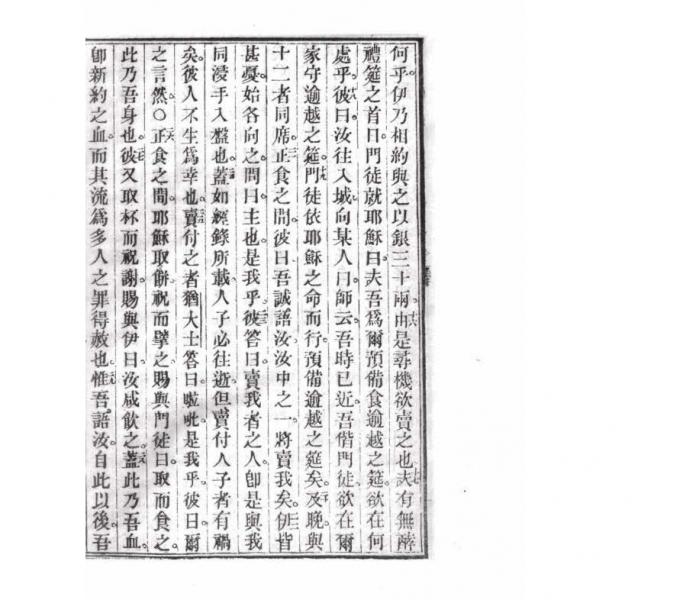 何乎。伊乃相約與之以銀三十兩。十六由是尋機欲賣之也。十七夫有無酵
禮筵之首日。門徒就耶穌曰。夫吾爲爾預備食逾越之筵。欲在何
處乎。十八彼曰。汝往入城向某人曰。師云。吾時已近。吾偕門徒欲在爾
家守逾越之筵。十九門徒依耶穌之命而行。預備逾越之筵矣。二十及晚與
十二者同席。二一正食之間。彼曰。吾誠語汝。汝中之一將賣我矣。二二伊皆
甚憂。始各向之問曰。主也。是我乎。二三彼答曰。賣我者之人。卽是與我
同浸手入盤也。二四蓋如經錄所載。人子必往逝。但賣付人子者有禍
矣。彼人不生爲幸也。二五賣付之者猶大士答曰。㘑呲。是我乎。彼曰。爾
之言然。○二六正食之間。耶穌取餅祝而擘之。賜與門徒曰。取而食之。
此乃吾身也。二七彼又取杯而祝謝。賜與伊曰。汝咸飲之。二八蓋此乃吾血。
卽新約之血。而其流爲多人之罪得赦也。二九惟吾語汝。自此以後。吾